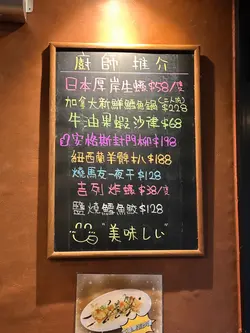 廚師推介
日本厚岸生蠔$58/隻
加拿大新鮮鱈魚鍋(二人前)$228
牛油果蝦沙律$68
安格斯封門柳$198
紐西蘭羊髀扒$188
燒馬友一夜干$128
吉列炸蠔$38/隻
鹽燒鱈魚鮫$128
"美味しい"